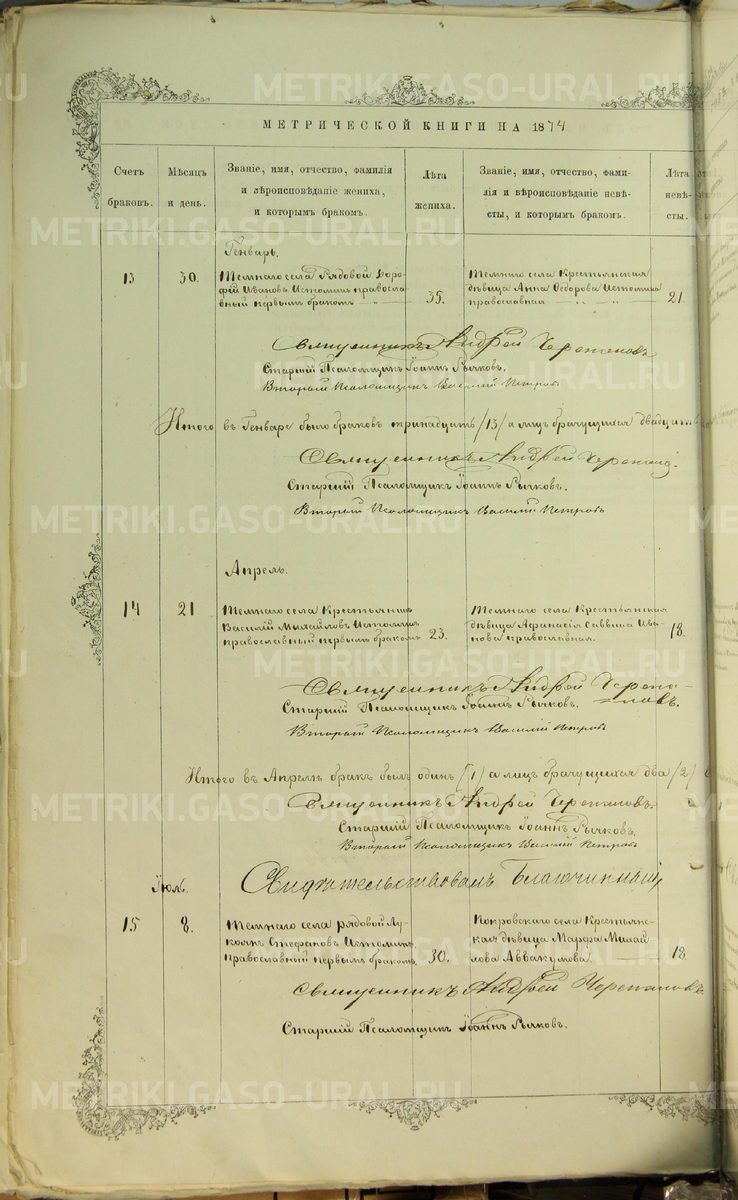 МЕТРИЧЕСКОЙ КНИГИ НА 1874
Счетъ браковъ.
Мѣсяцъ и день.
Званіе, имя, отчество, фамилія
и вѣроисповѣданіе жениха,
и которымъ бракомъ.
Лѣта жениха.
Званіе, имя, отчество, фами-
лія и вѣроисповѣданіе невѣ-
сты, и которымъ бракомъ.
Лѣта невѣ-
сты.
Генварь.
13
30.
Темнаго села Рядовой Доро-
фей Ивановъ Истоминъ правосла-
вный первымъ бракомъ
35.
Темнаго села Крестьянская
дѣвица Анна Ѳедорова Истомина
православная
21.
Священникъ Андрей Черепановъ
Старшій Псаломщикъ Іоаннъ Рычковъ.
Вторый Псаломщикъ Василій Петровъ
Итого въ Генварѣ было браковъ тринадцать /13/ а лицъ брачущихся двадцать
Священникъ Андрей Черепановъ.
Старшій Псаломщикъ Іоаннъ Рычковъ.
Вторый Псаломщикъ Василій Петровъ
Апрель.
14
21
Темнаго села Крестьянинъ
Василій Михайловъ Истоминъ
православный первымъ бракомъ
23.
Темнаго села Крестьянская
дѣвица Афанасія Саввина Ива-
нова православная.
18.
Священникъ Андрей Черепа-
новъ.
Старшій Псаломщикъ Іоаннъ Рычковъ.
Вторый Псаломщикъ Василій Петровъ
Итого въ Апрелѣ бракъ былъ одинъ /1/ а лицъ брачущихся два /2/
Священникъ Андрей Черепановъ.
Старшій Псаломщикъ Іоаннъ Рычковъ.
Вторый Псаломщикъ Василій Петровъ
Свидѣтельствовалъ Благочинный
Іюль.
15
8.
Темнаго села рядовой Лу-
коянъ Стефановъ Истоминъ,
православный первымъ бракомъ.
30.
Покровскаго села Крестьянс-
кая дѣвица Марфа Михай
лова Аввакумова
18.
Священникъ Андрей Черепановъ.
Старшій Псаломщикъ Іоаннъ Рычковъ.
METRIKI.GASO-URAL.RU